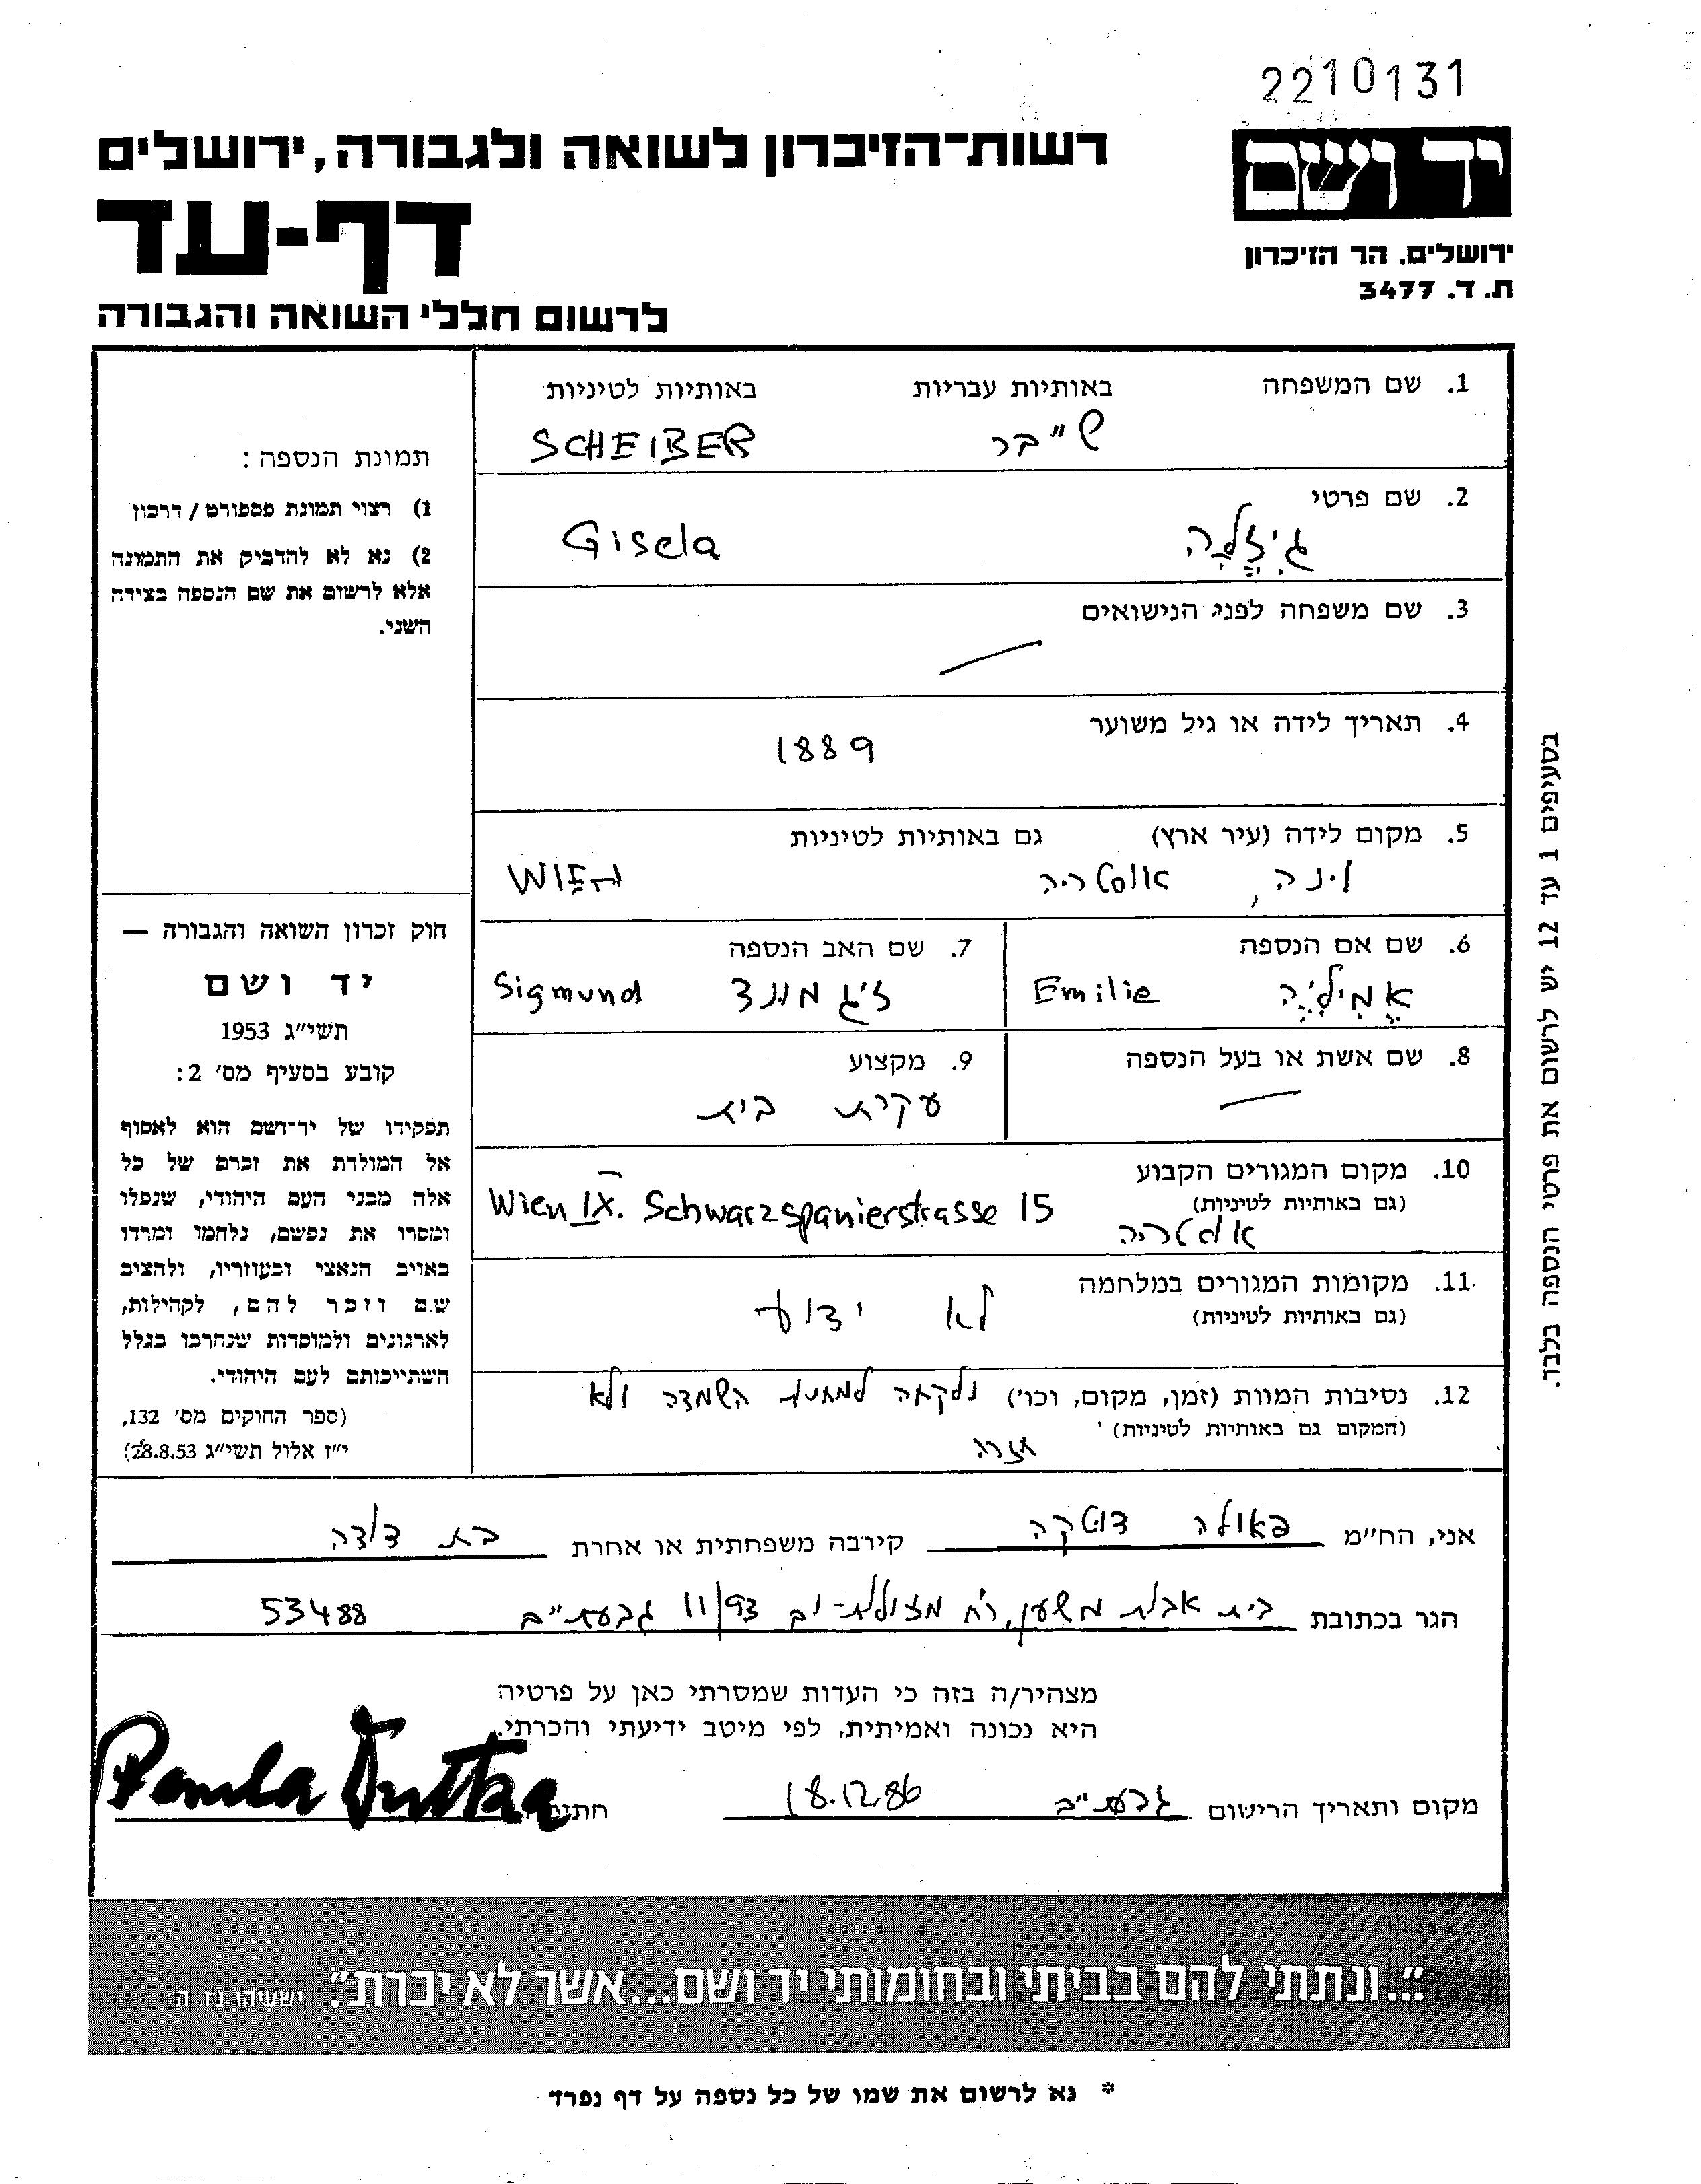 2210131
יד ושם
ירושלים, הר הזיכרון
ת.ד. 3477
רשות־הזיכרון לשואה ולגבורה, ירושלים
דף-עד
לרשום חללי השואה והגבורה
1. שם המשפחה באותיות עבריות באותיות לטיניות
שייבר SCHEIBER
2. שם פרטי
גיזלה Gisela
3. שם משפחה לפני הנישואים
4. תאריך לידה או גיל משוער
1889
5. מקום לידה (עיר ארץ) גם באותיות לטיניות
וינה, אוסטריה WIEN
6. שם אם הנספה
אמיליה Emilie
7. שם האב הנספה
זיגמונד Sigmund
8. שם אשת או בעל הנספה
9. מקצוע
עקרת בית
10. מקום המגורים הקבוע
(גם באותיות לטיניות)
Wien IX. Schwarzspanierstrasse 15
אוסטריה
11. מקומות המגורים במלחמה
(גם באותיות לטיניות)
לא ידוע
12. נסיבות המוות (זמן, מקום, וכו') נלקחה למחנה השמדה ולא
(המקום גם באותיות לטיניות)
חזרה
תמונת הנספה:
1) רצוי תמונת פספורט / דרכון
2) נא לא להדביק את התמונה
אלא לרשום את שם הנספה בצידה
השני.
חוק זכרון השואה והגבורה —
יד ושם
תשי״ג 1953
קובע בסעיף מס׳ 2:
תפקידו של יד־ושם הוא לאסוף
אל המולדת את זכרם של כל
אלה מבני העם היהודי, שנפלו
ומסרו את נפשם, נלחמו ומרדו
באויב הנאצי ובעוזריו, ולהציב
שם וזכר להם, לקהילות,
לארגונים ולמוסדות שנהרבו בגלל
השתייכותם לעם היהודי.
(ספר החוקים מס׳ 132,
י״ז אלול תשי״ג 28.8.53)
בסעיפים 1 עד 12 יש לרשום את פרטי הנספה בלבד.
אני, הח״מ פאולה דוטקה קירבה משפחתית או אחרת בת דודה
הגר בכתובת בית אבות משען, רח' מצולות-ים 11/93 גבעתיים 53488
מצהיר/ה בזה כי העדות שמסרתי כאן על פרטיה
היא נכונה ואמיתית, לפי מיטב ידיעתי והכרתי.
מקום ותאריך הרישום גבעתיים 18.12.86 Paula Dutka
״...ונתתי להם בביתי ובחומותי יד ושם...אשר לא יכרת״. ישעיהו נז, ה
* נא לרשום את שמו של כל נספה על דף נפרד